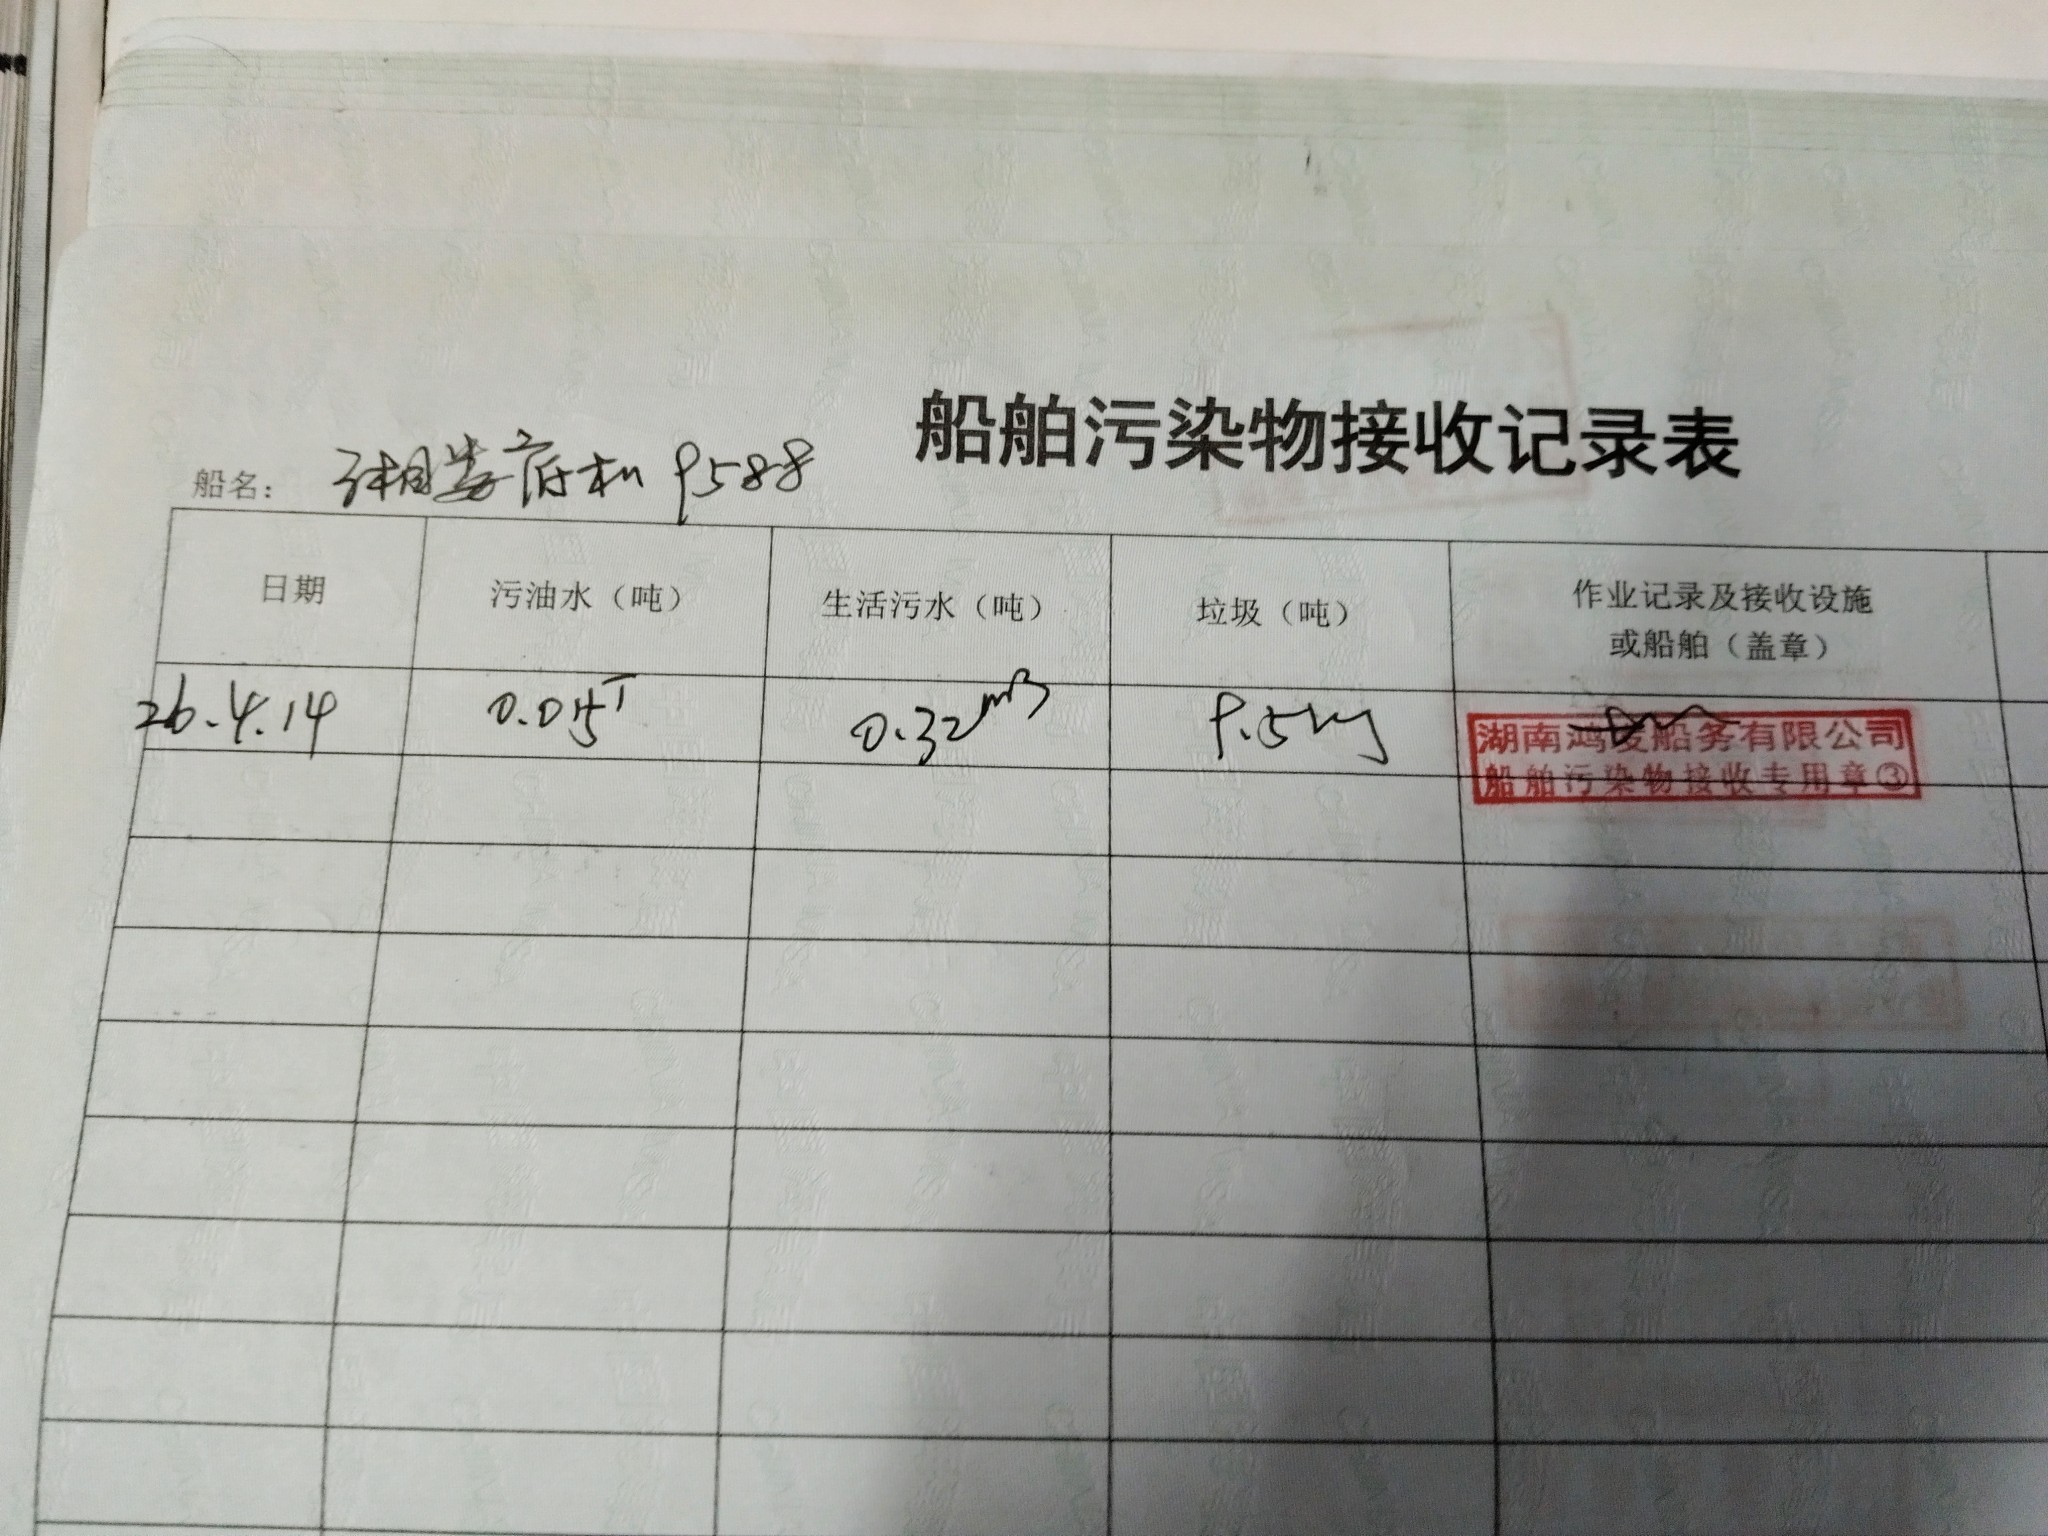 船舶污染物接收记录表
船名： 湘娄府机 9588
日期 污油水（吨） 生活污水（吨） 垃圾（吨） 作业记录及接收设施
或船舶（盖章）
26.4.14 0.05T 0.32m3 9.5kg
湖南鸿发船务有限公司
船舶污染物接收专用章③